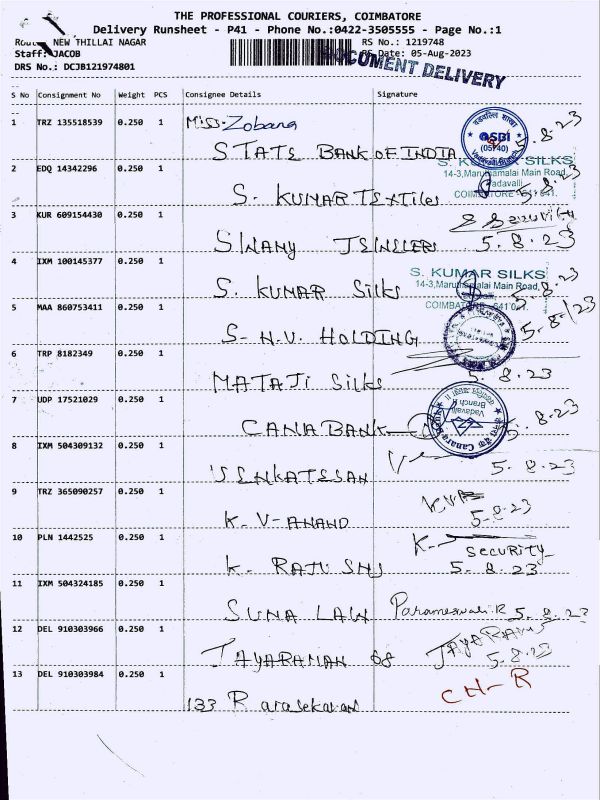 THE PROFESSIONAL COURIERS, COIMBATORE
Delivery Runsheet - P41 - Phone No.:0422-3505555 - Page No.:1
NEW THILLAI NAGAR RS No.: 1219748
Staff: JACOB RS Date: 05-Aug-2023
DRS No.: DCJB121974801
DOCUMENT DELIVERY
S No Consignment No Weight PCS Consignee Details Signature
1 TRZ 135518539 0.250 1 Miss. Zobana
STATE BANK OF INDIA SBI (05740) 5.8.23
2 EDQ 14342296 0.250 1 S. KUMAR SILKS
14-3,Maruthamalai Main Road,
Vadavalli
COIMBATORE - 641 041.
S. KUMAR TEXTiles 5.8.23
3 KUR 609154430 0.250 1 Security
SWAMY JEWELLERS 5.8.23
4 IXM 100145377 0.250 1 S. KUMAR SILKS
14-3,Maruthamalai Main Road,
S. KUMAR Silks 5.8.23
5 MAA 860753411 0.250 1
S.N.V. HOLDING 5.8.23
6 TRP 8182349 0.250 1
MATAJI Silks 5.8.23
7 UDP 17521029 0.250 1 Vadavalli Branch
CANABANK 5.8.23
8 IXM 504309132 0.250 1
VENKATESAN 5.8.23
9 TRZ 365090257 0.250 1
K.V-ANAND 5.8.23
10 PLN 1442525 0.250 1 K- SECURITY
5.8.23
11 IXM 504324185 0.250 1
SUNA LAW Parameswari.R 5.8.23
12 DEL 910303966 0.250 1 JAYARAM
JAYARAMAN 68 5.8.23
13 DEL 910303984 0.250 1 CN-R
133 Rarasekaran